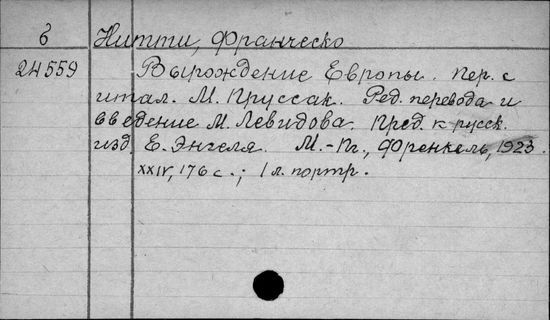 6 Нитти, Франческо
24559 Вырождение Европы. Пер. с
итал. М. Пруссак. Ред. перевода и
введение М. Левидова. Пред. к русск.
изд. Е. Энгеля. М.-Пг., Френкель, 1923.
XXIV, 176 с.; 1 л. портр.